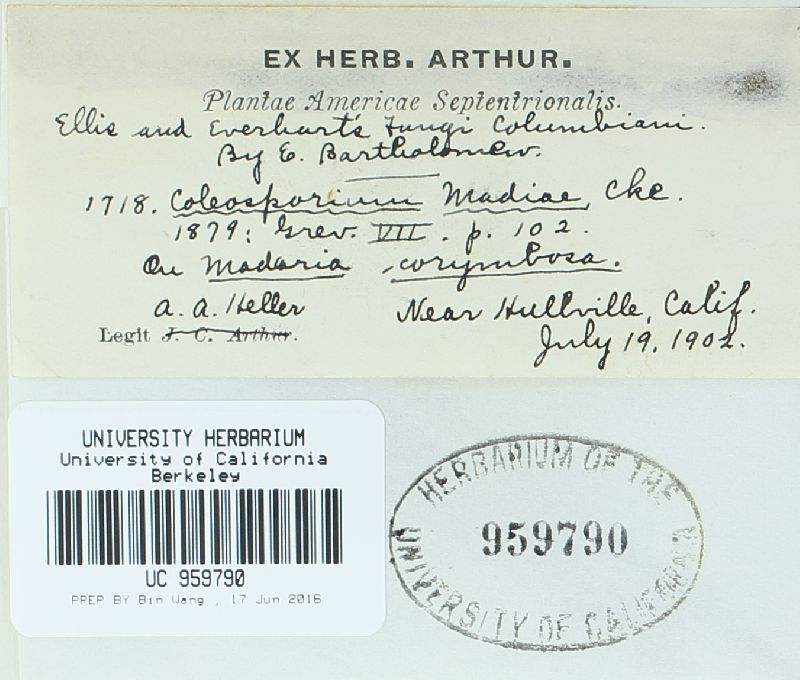 EX HERB. ARTHUR.
Plantae Americae Septentrionalis.
Ellis and Everhart's Fungi Columbiani.
By E. Bartholomew.
1718. Coleosporium Madiae, Cke.
1879; Grev. VII. p. 102.
On Madaria corymbosa.
A. A. Heller
Near Hullville, Calif.
Legit J. C. Arthur.
July 19, 1902.
UNIVERSITY HERBARIUM
University of California
Berkeley
UC 959790
PREP BY Bin Wang , 17 Jun 2016
HERBARIUM OF THE
959790
UNIVERSITY OF CALIFORNIA